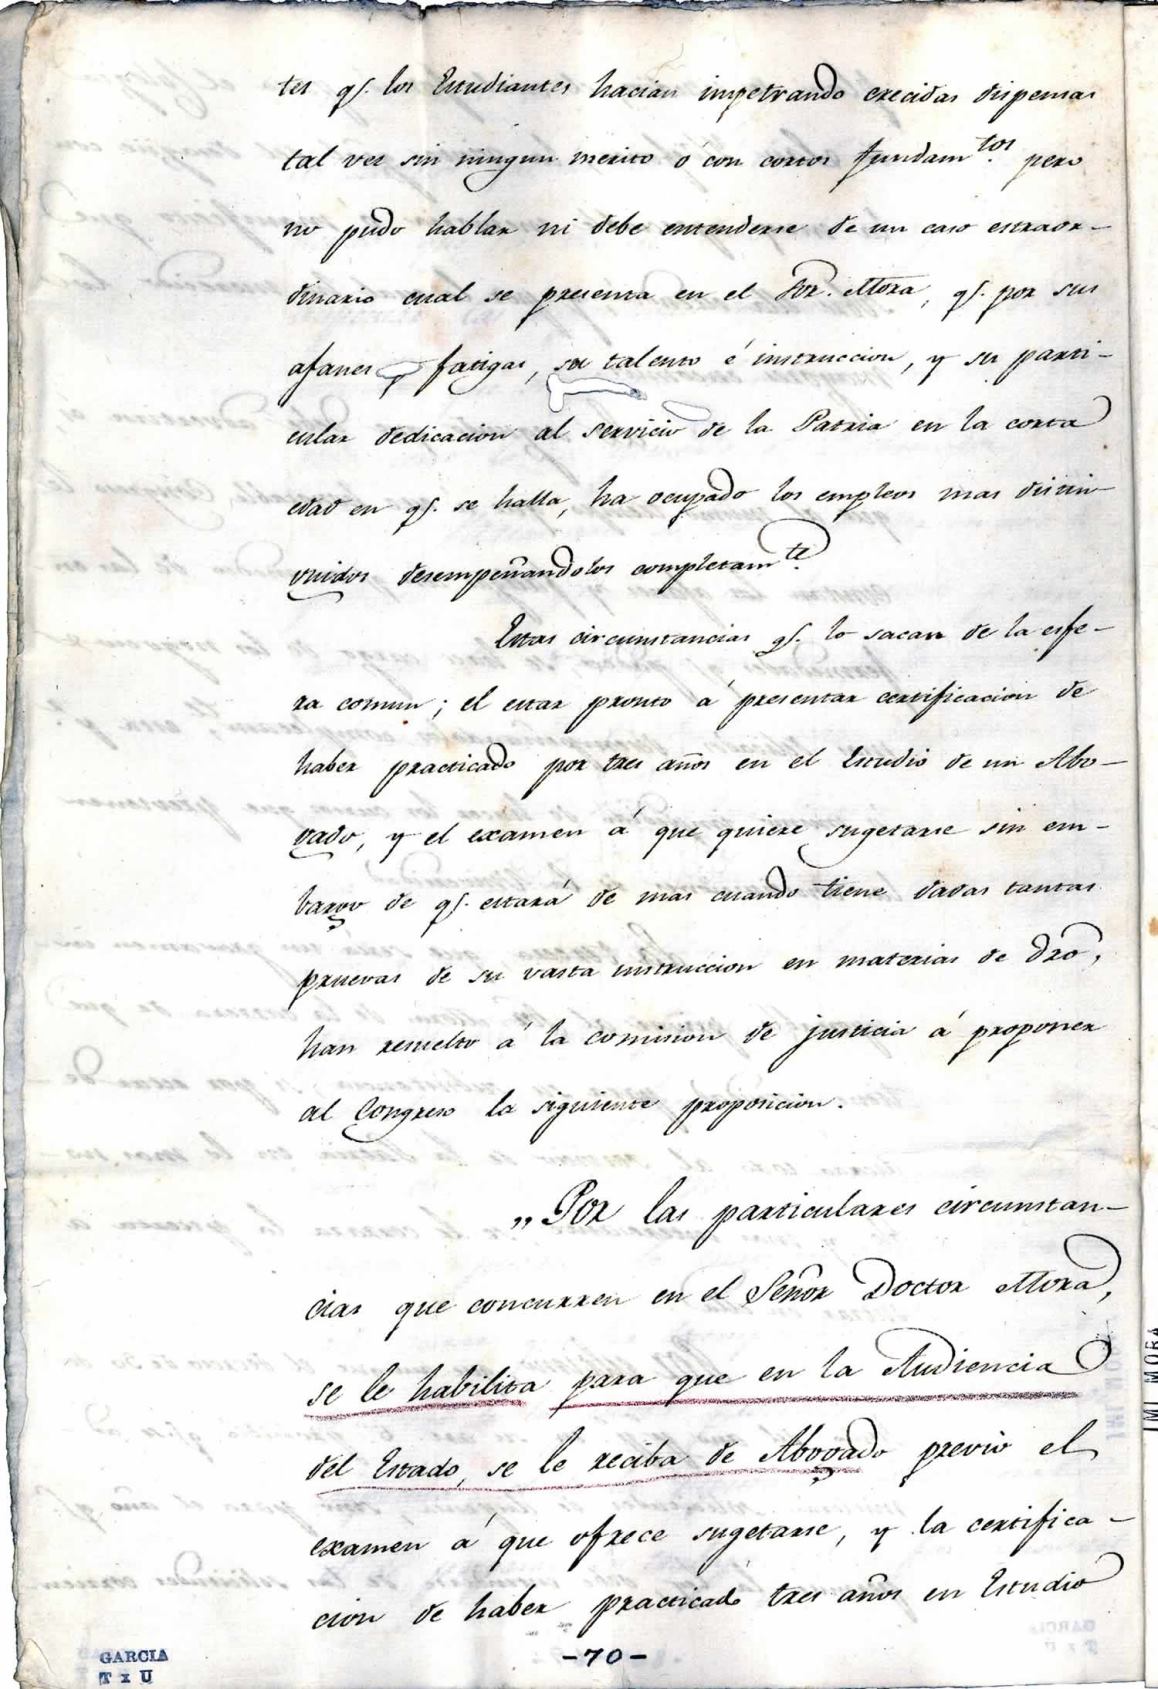 tes qͤ. los Estudiantes hacian impetrando crecidas dispensas
tal vez sin ningun merito ó con cortos fundam.tos pero
no pudo hablar ni debe entenderse de un caso estraor-
dinario cual se presenta en el Sor. Mora, qͤ. por sus
afanes y fatigas, su talento é instruccion, y su parti-
cular dedicacion al servicio de la Patria en la corta
edad en qͤ. se halla, ha ocupado los empleos mas distin-
guidos desempeñandolos completam.te
Estas circunstancias qͤ. lo sacan de la esfe-
ra comun; el estar pronto á presentar certificacion de
haber practicado por tres años en el Estudio de un Abo-
gado, y el examen á que quiere sugetarse sin em-
bargo de qͤ. estará de mas cuando tiene dadas tantas
pruevas de su vasta instruccion en materias de Dro,
han resuelto á la comision de justicia á proponer
al Congreso la siguiente proposicion.
„Por las particulares circunstan-
cias que concurren en el Señor Doctor Mora,
se le habilita para que en la Audiencia
del Estado, se le reciba de Abogado previo el
examen á que ofrece sugetarse, y la certifica-
cion de haber practicado tres años en Estudio
-70-
GARCIA
T x U
IML MORA